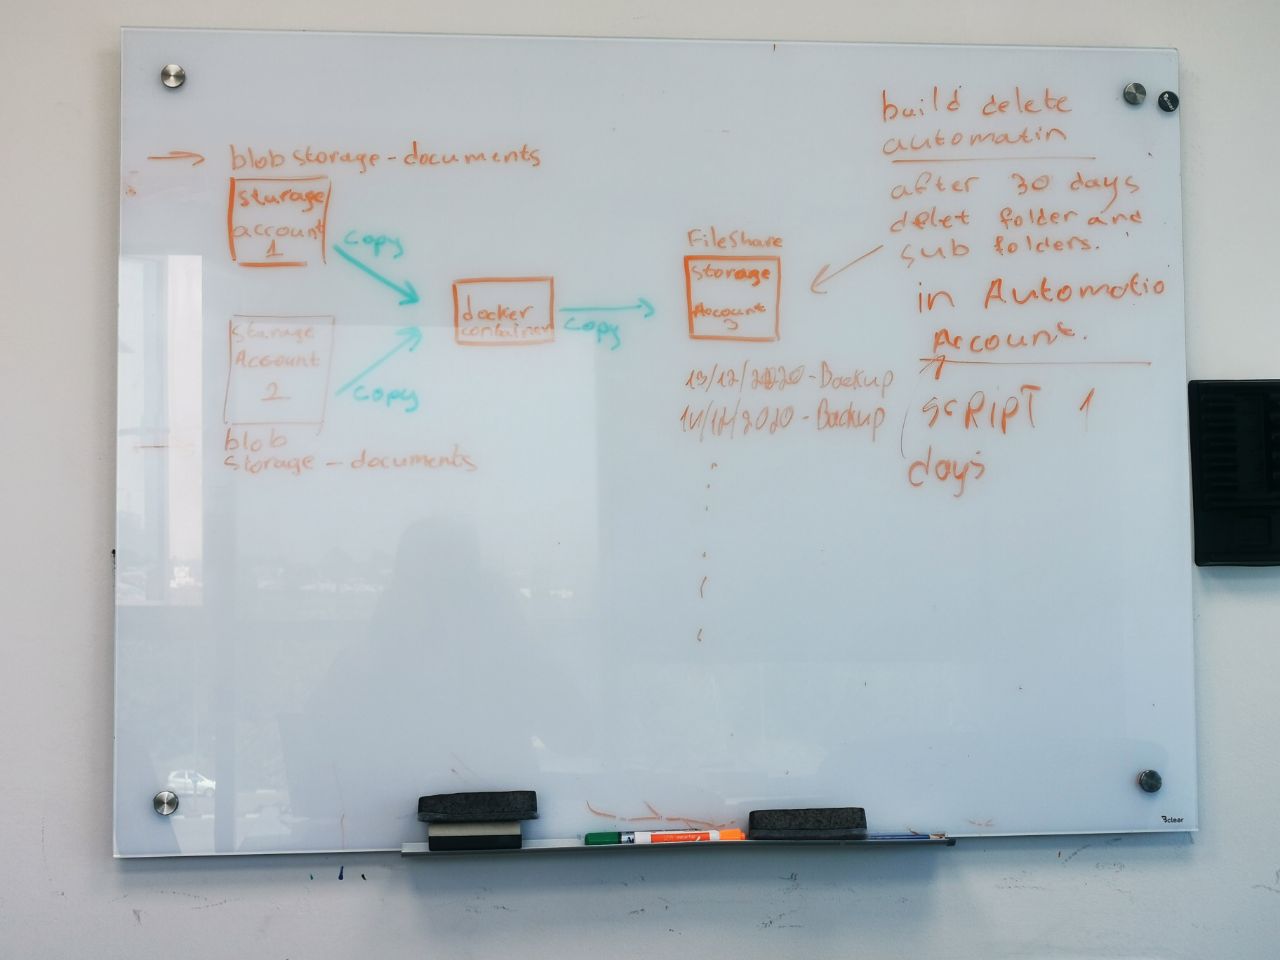 blob storage - documents
storage
account
1
copy
storage
Account
2
copy
blob
storage - documents
docker
container
copy
FileShare
storage
Account
3
13/12/2020 - Backup
14/12/2020 - Backup
build delete
automatin
after 30 days
delet folder and
sub folders.
in Automatio
Account.
scRIPT 1
days
Bclear